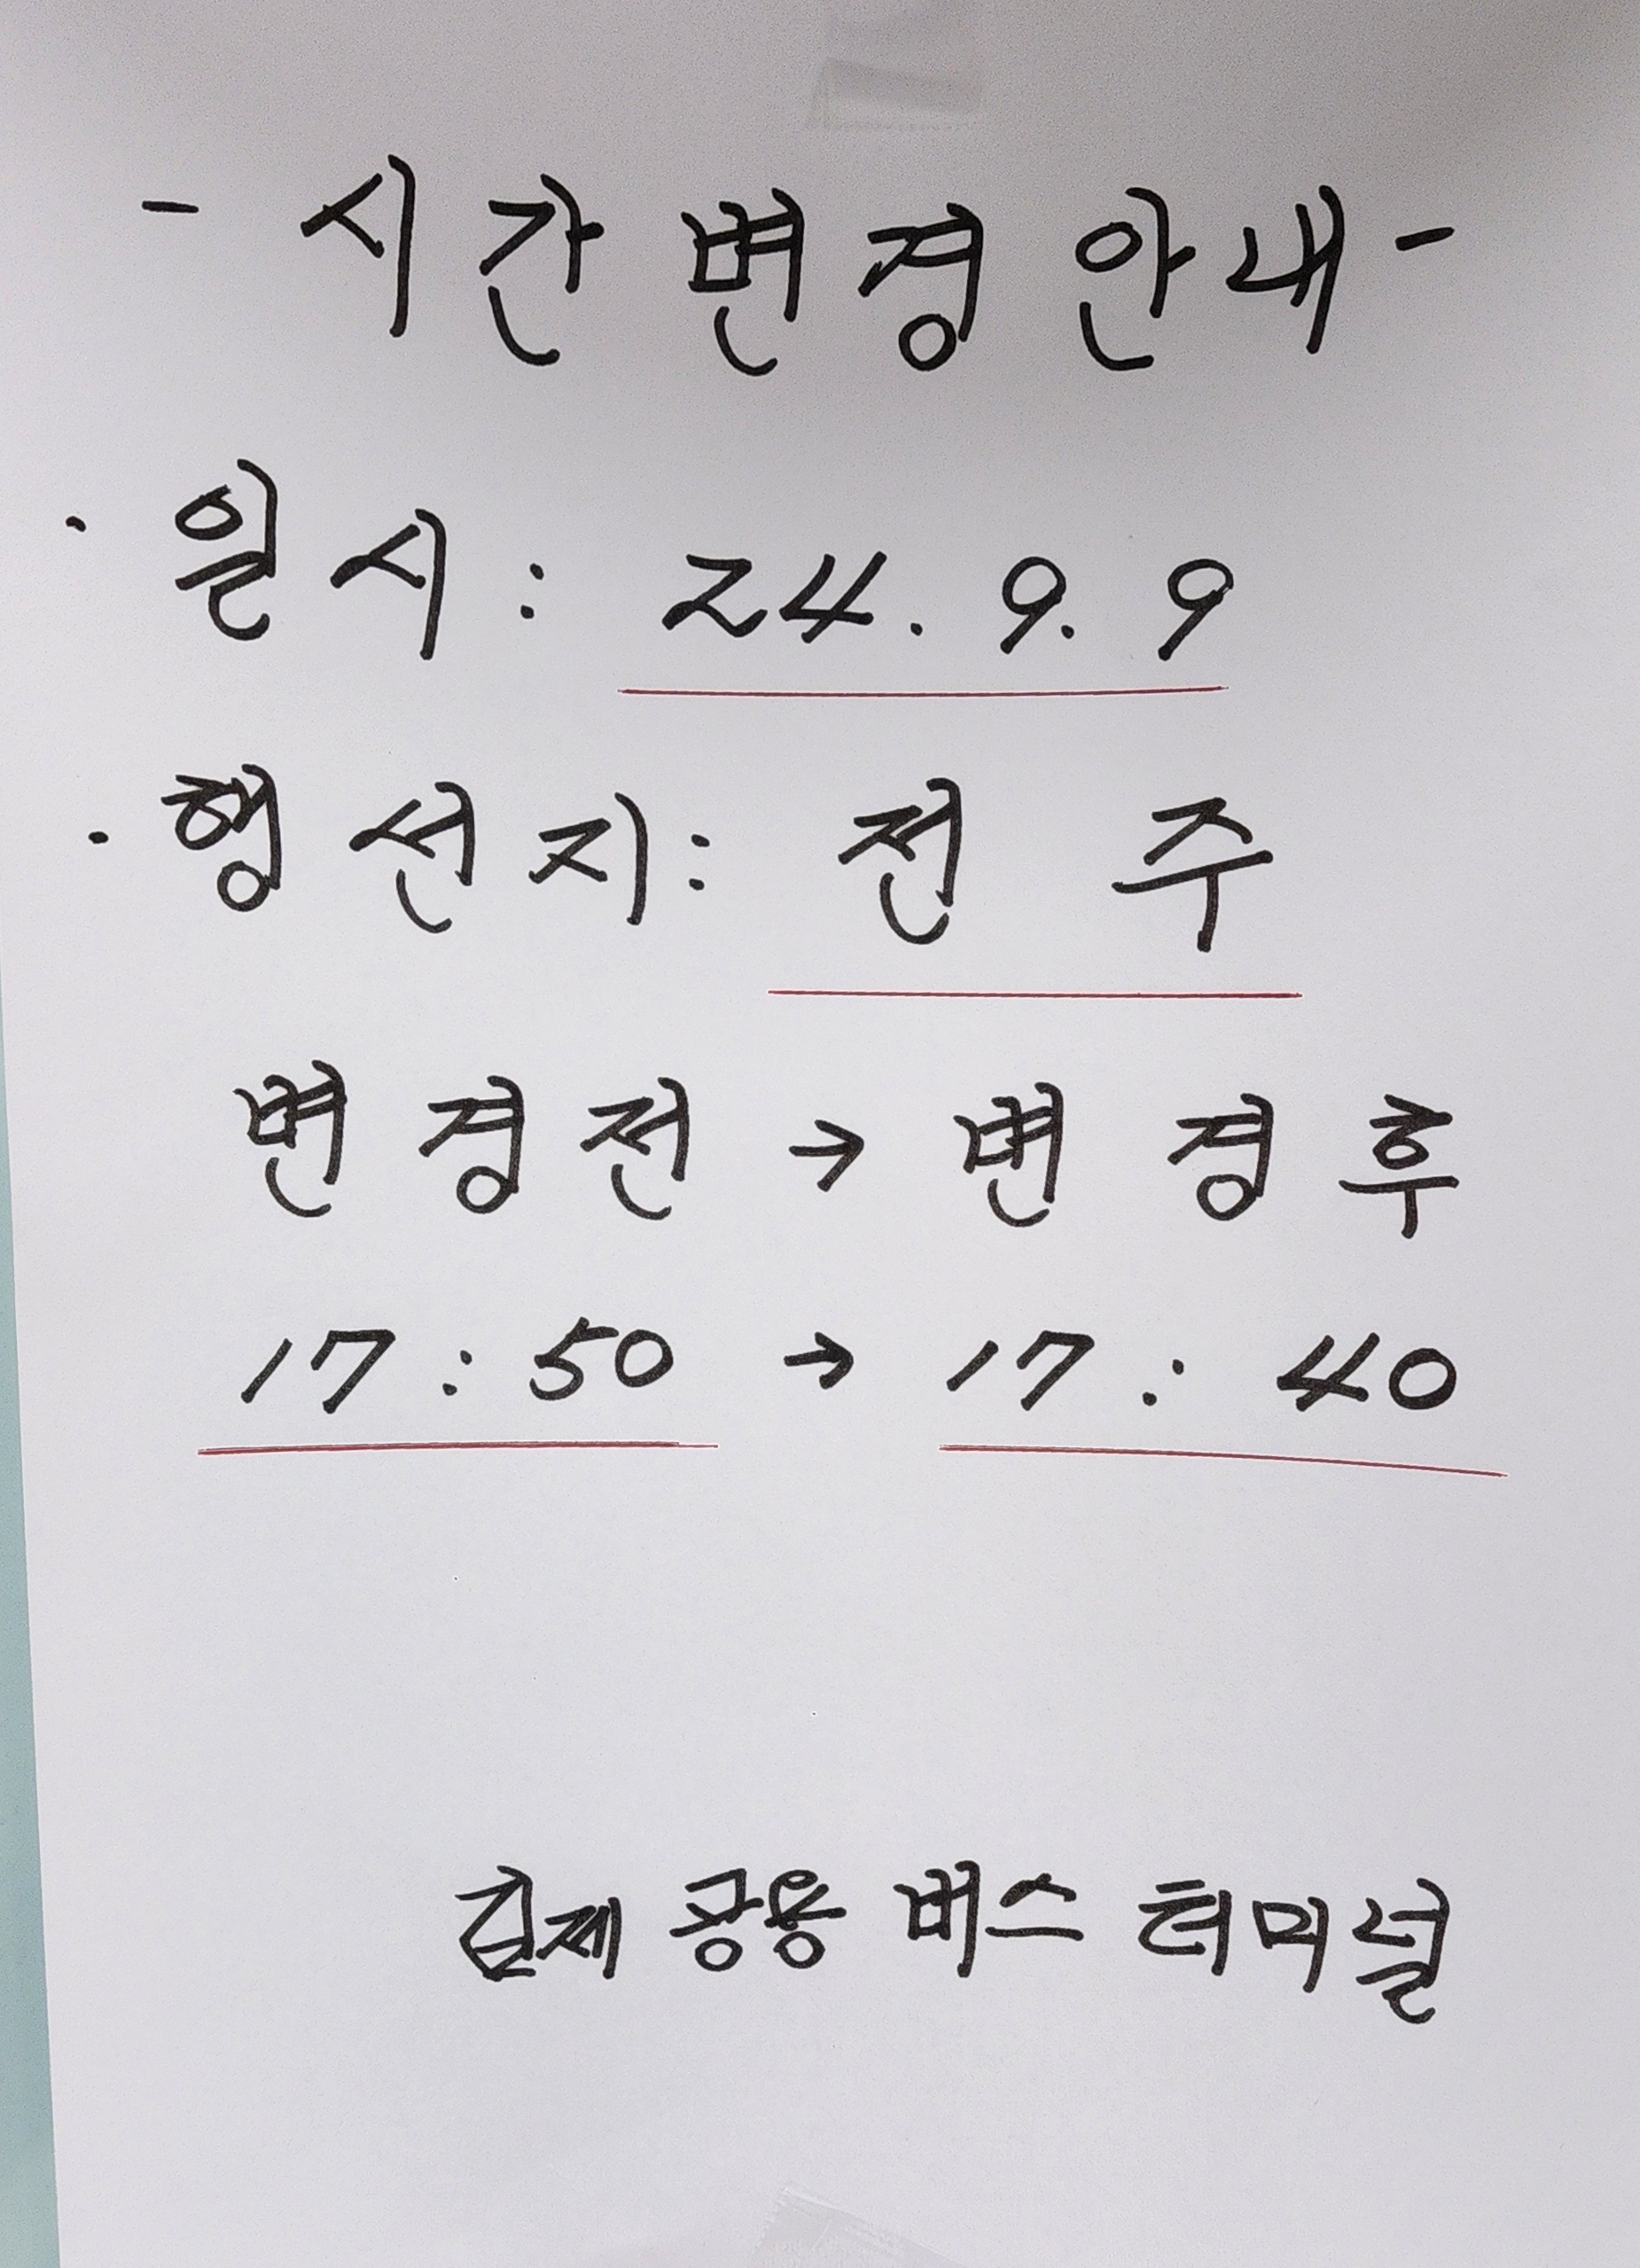 - 시간 변경 안내 -
· 일시 : 24. 9. 9
· 행선지 : 전주
변경전 → 변경후
17 : 50 → 17 : 40
김제 공용 버스 터미널